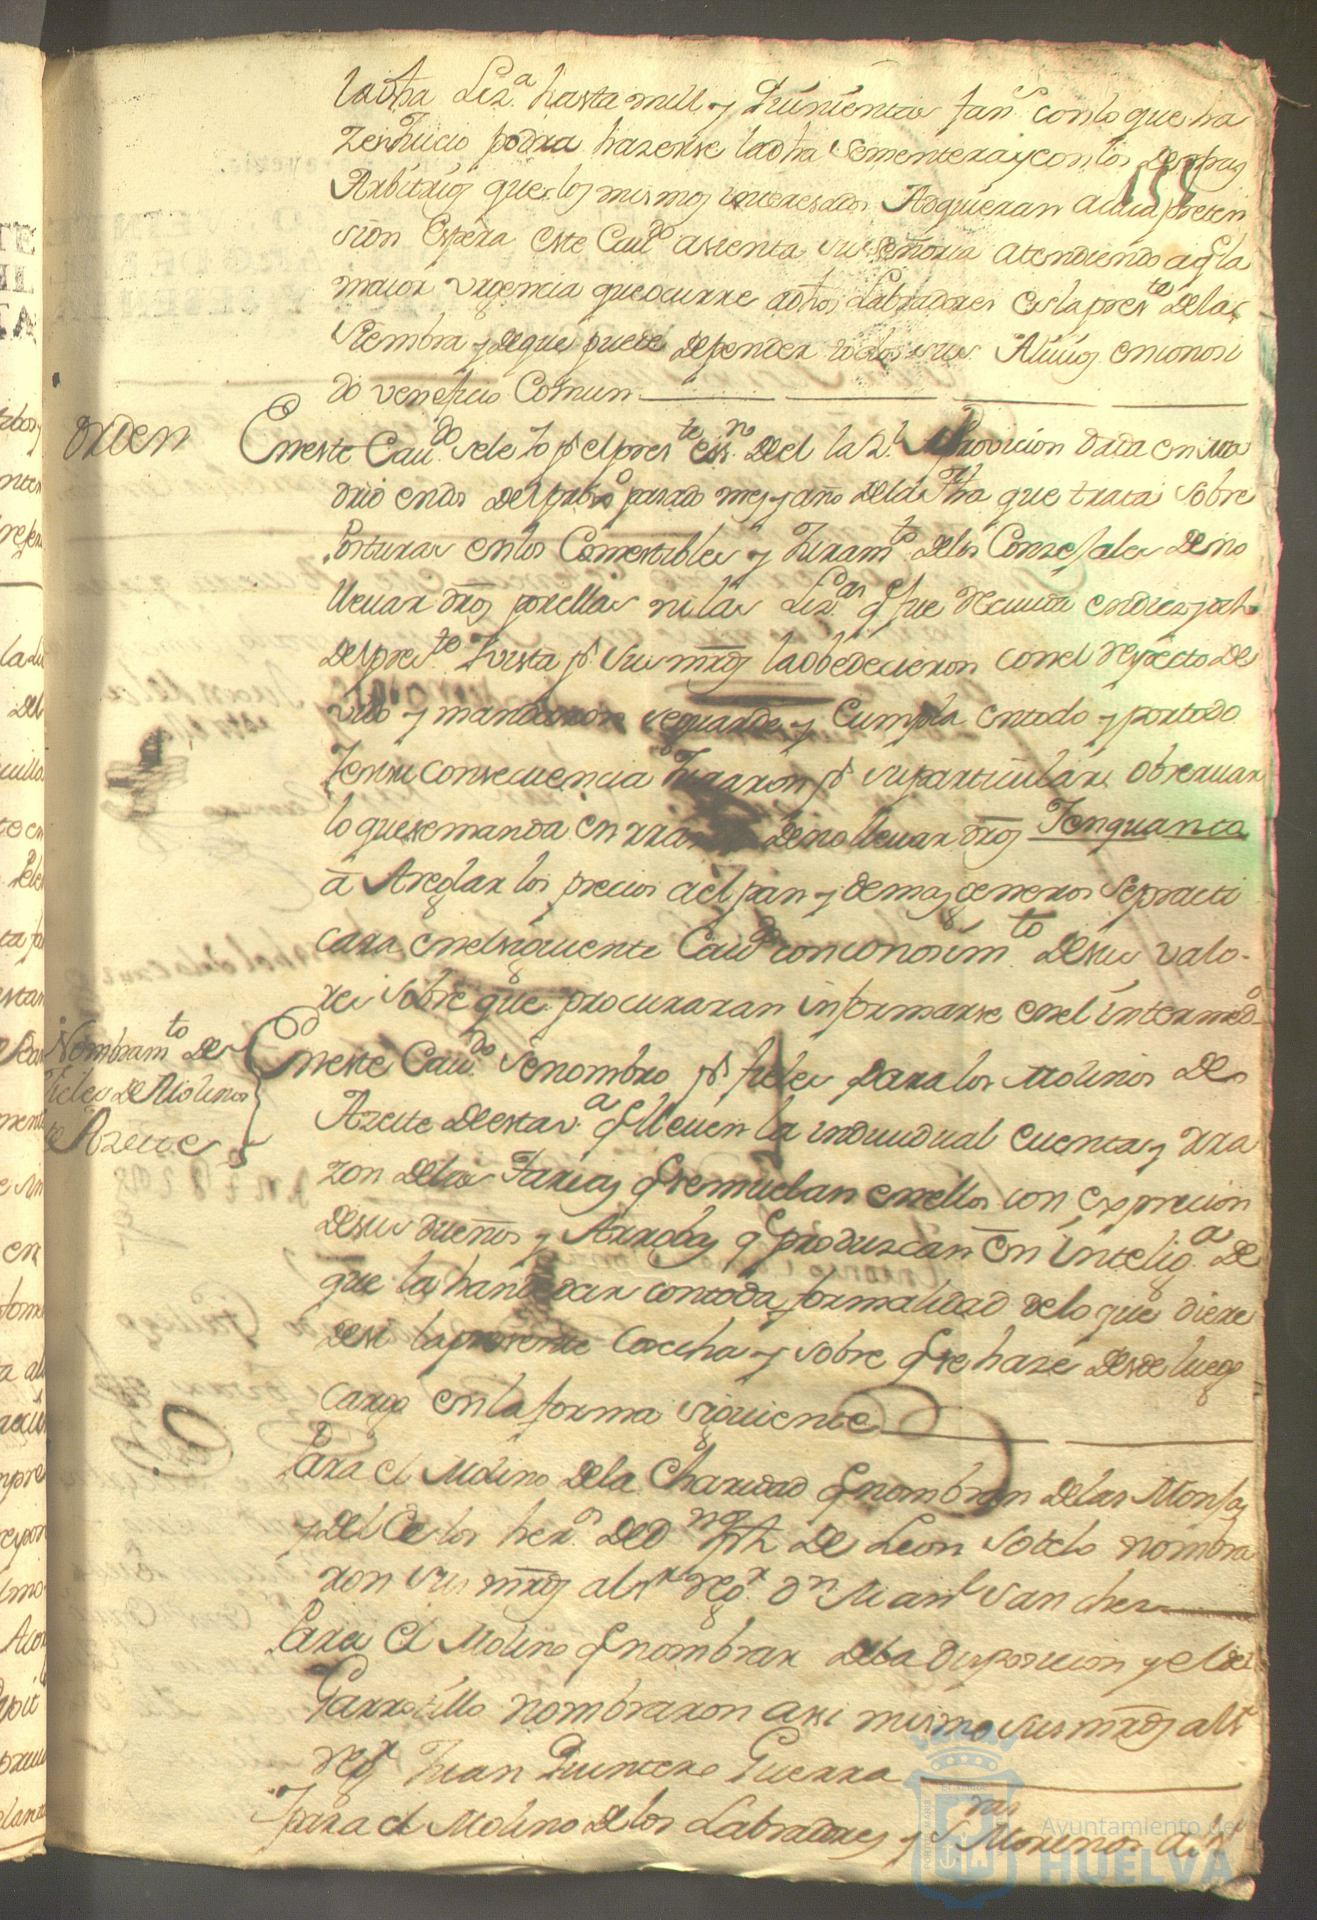 la dha Liz.ª hasta mill y Quinientas fan.s con lo que ha
zen Juicio podra hazerse la dha sementera y con los demas
Arbitrios que los mismos interesados Adquieran a cuia preten
sion Espera este Cau.do asienta su señoria atendiendo a q.e la
maior vrgencia que ocurre a dhos Labradores es la pres.te de la
siembra y de que puede depender todos sus Aliuios en conosi
do veneficio Comun
Orden
En este Cau.do se le Io p.r el pres.te ess.no de el la R.l Provicion dada en Ma
drid en dos del pasado mes y año de la fha que trata sobre
Posturas en los Comestibles y Juram.to de los Conzejales de no
lleuar dros por ellas ni las Liz.as q.e fue Recivida en diez y ocho
del pres.te Y vista p.r sus mrds la obedecieron con el respecto de
vido y mandaron se guarde y Cumpla en todo y por todo
Y en su consecuencia Juraron p.r su particular obseruar
lo que se manda en razon de no lleuar dros Y en quanto
a Areglar los precios a el pan y demas generos se practi
cara en el siguiente Cau.do con conosim.to de sus valo-
res sobre que procuraran informarse en el intermedio
Nombram.to de
Fieles de Molinos
de Azeite
En este Cau.do se nombro p.r fieles para los Molinos de
Azeite de esta v.ª q.e lleuen la indiuidual cuenta y rra
zon de las Tareas q.e se muelan en ellos con exprecion
de sus dueños y Arrobas q.e produzcan en intelig.ª de
que la han de dar con toda formalidad de lo que diere
de si la presente Cosecha y sobre q.e se haze desde luego
cargo en la forma siguiente
Para el Molino de la Charidad q.e nombran de las Monjas
y del de los her.os de D.n de Leon Sotelo nombra
ron sus mrds al s.r reg.r D.n Man.l Sanchez
Para el Molino q.e nombran de la Disposicion y el del
Garrotillo nombraron assi mismo sus mrds al s.r
reg.r Juan Quintero Guerra
Y para el Molino de los Labradores y Morenos a
Ayuntamiento de
HUELVA